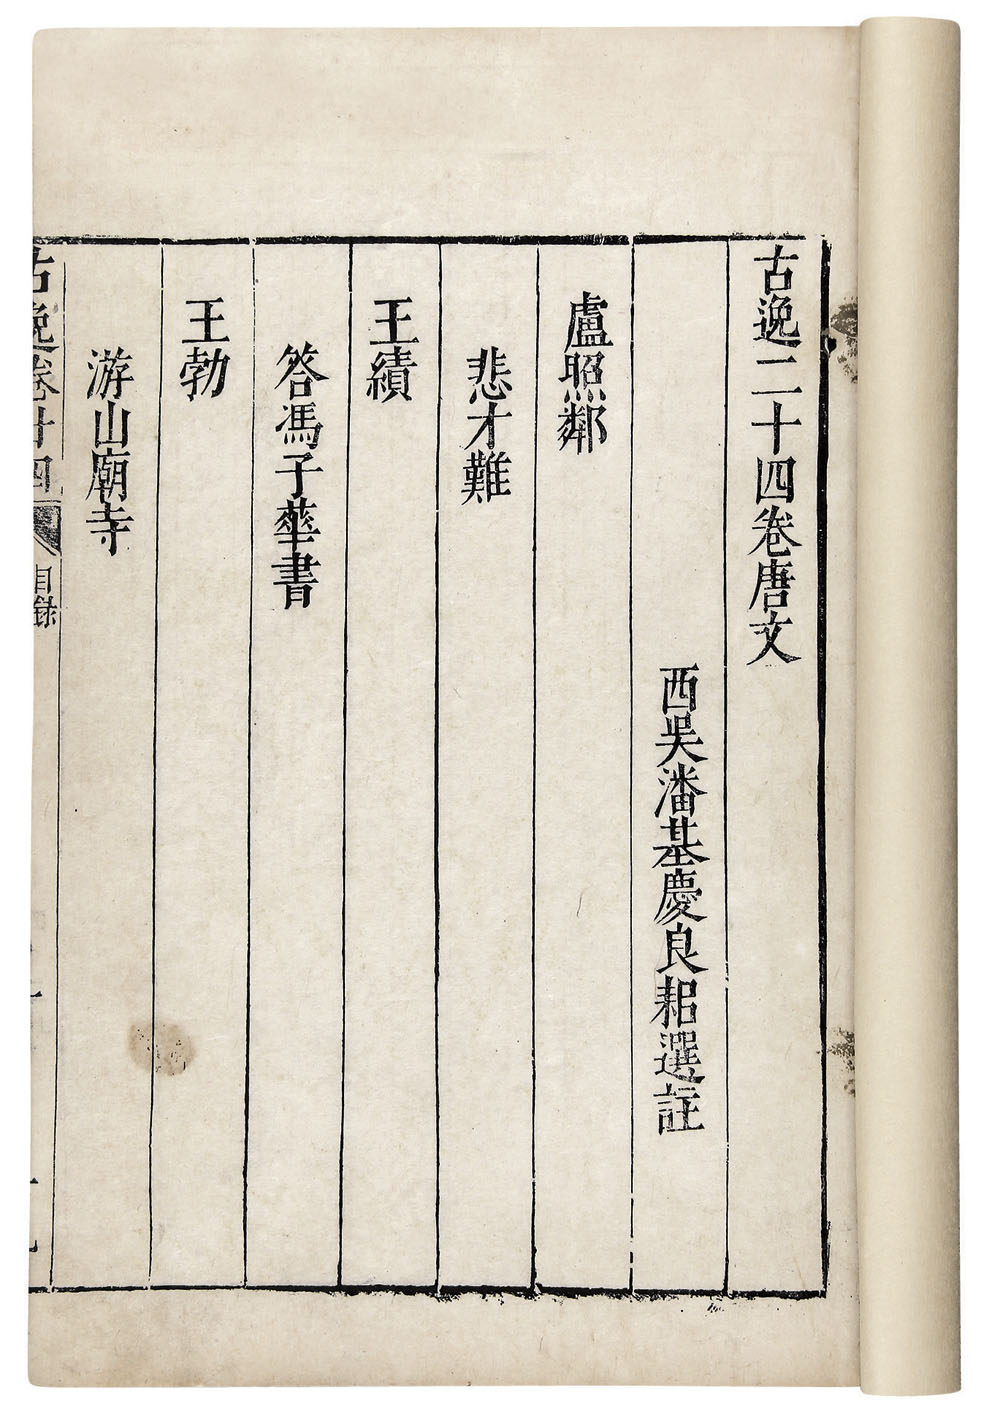 古逸二十四卷唐文
西吳潘基慶良耜選註
盧照鄰
悲才難
王績
答馮子華書
王勃
游山廟寺
古逸卷廿四
目錄